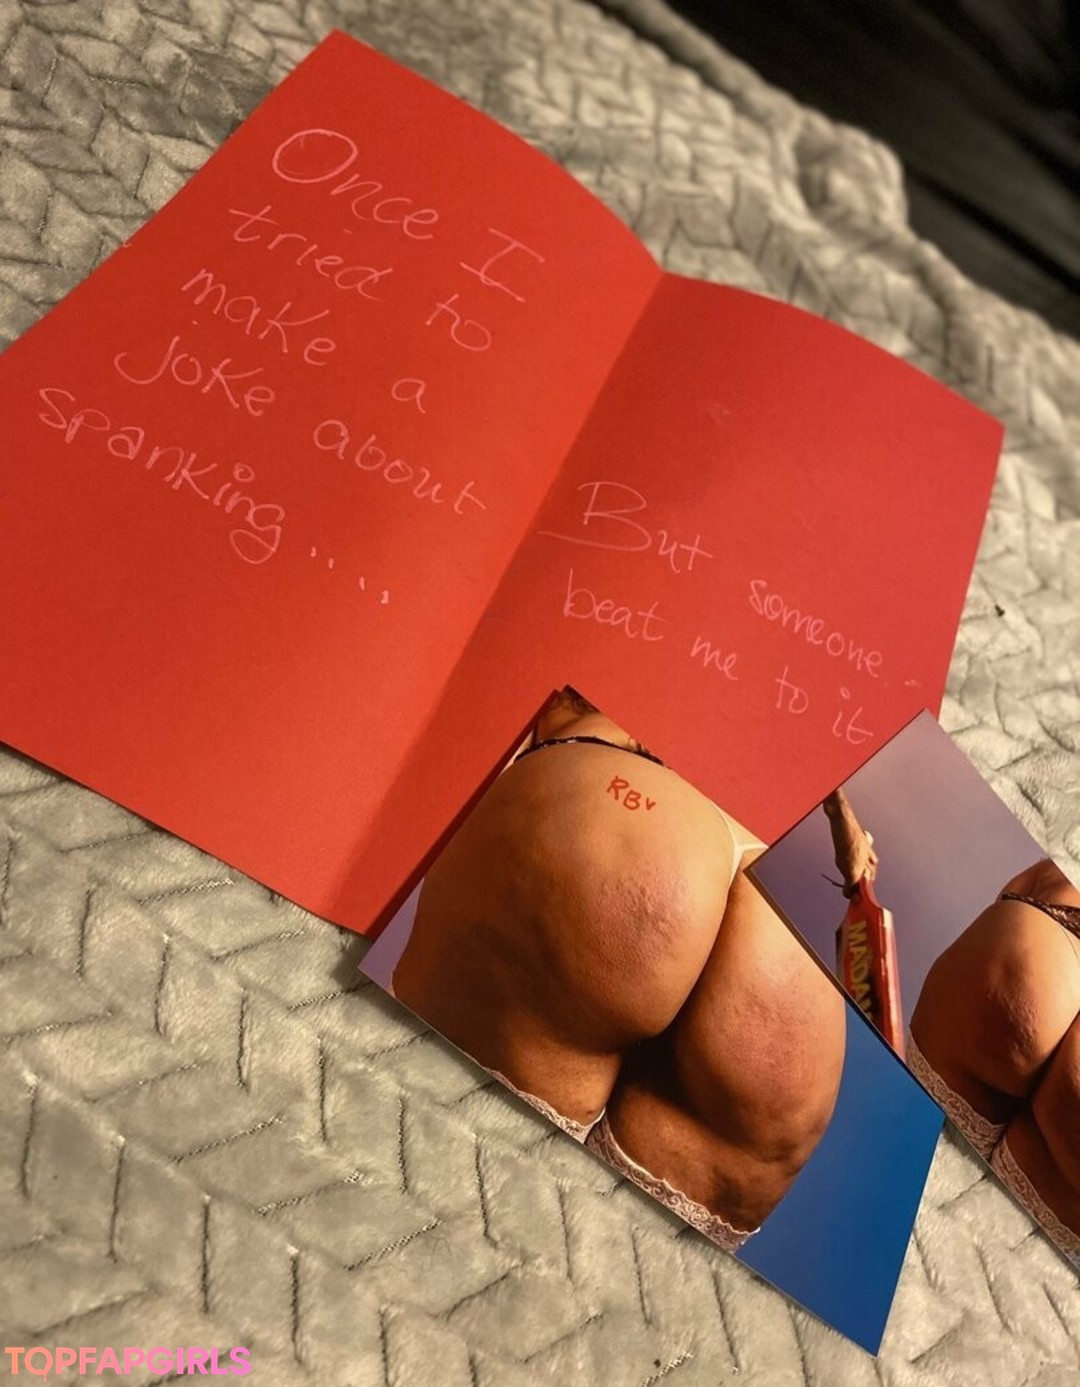 Once I
tried to
make a
joke about
spanking....
But someone
beat me to it
RBV
MADAM
TOPFAPGIRLS